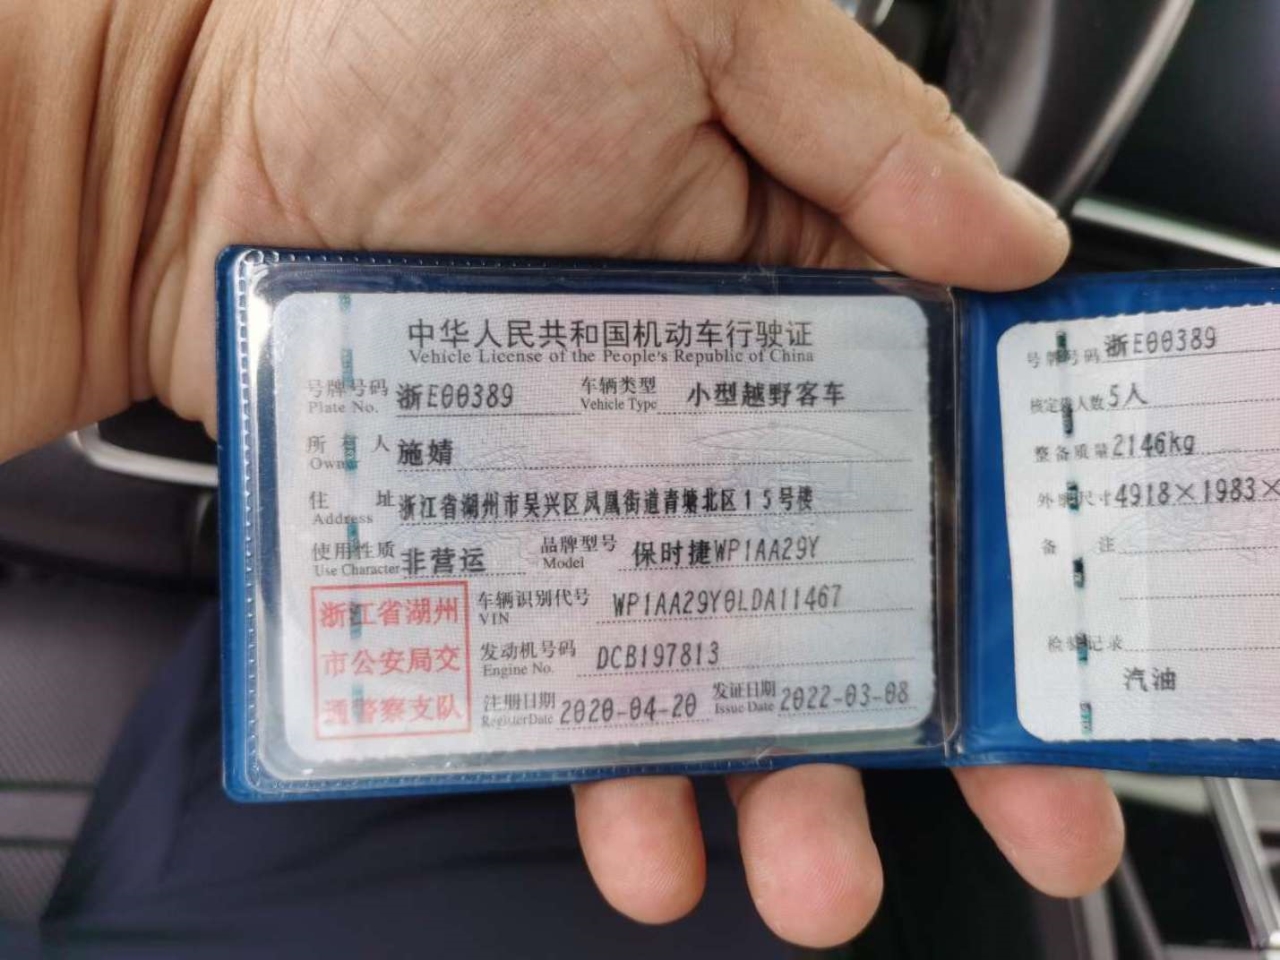 中华人民共和国机动车行驶证
Vehicle License of the People's Republic of China
号牌号码 浙E00389 车辆类型 小型越野客车
Plate No. Vehicle Type
所有人 施婧
Owner
住址 浙江省湖州市吴兴区凤凰街道青塘北区15号楼
Address
使用性质 非营运 品牌型号 保时捷WP1AA29Y
Use Character Model
浙江省湖州
市公安局交
通警察支队
车辆识别代号 WP1AA29Y0LDA11467
VIN
发动机号码 DCB197813
Engine No.
注册日期 2020-04-20 发证日期 2022-03-08
Register Date Issue Date
号牌号码 浙E00389
核定载人数 5人
整备质量 2146kg
外廓尺寸 4918×1983×
备注
检验记录
汽油